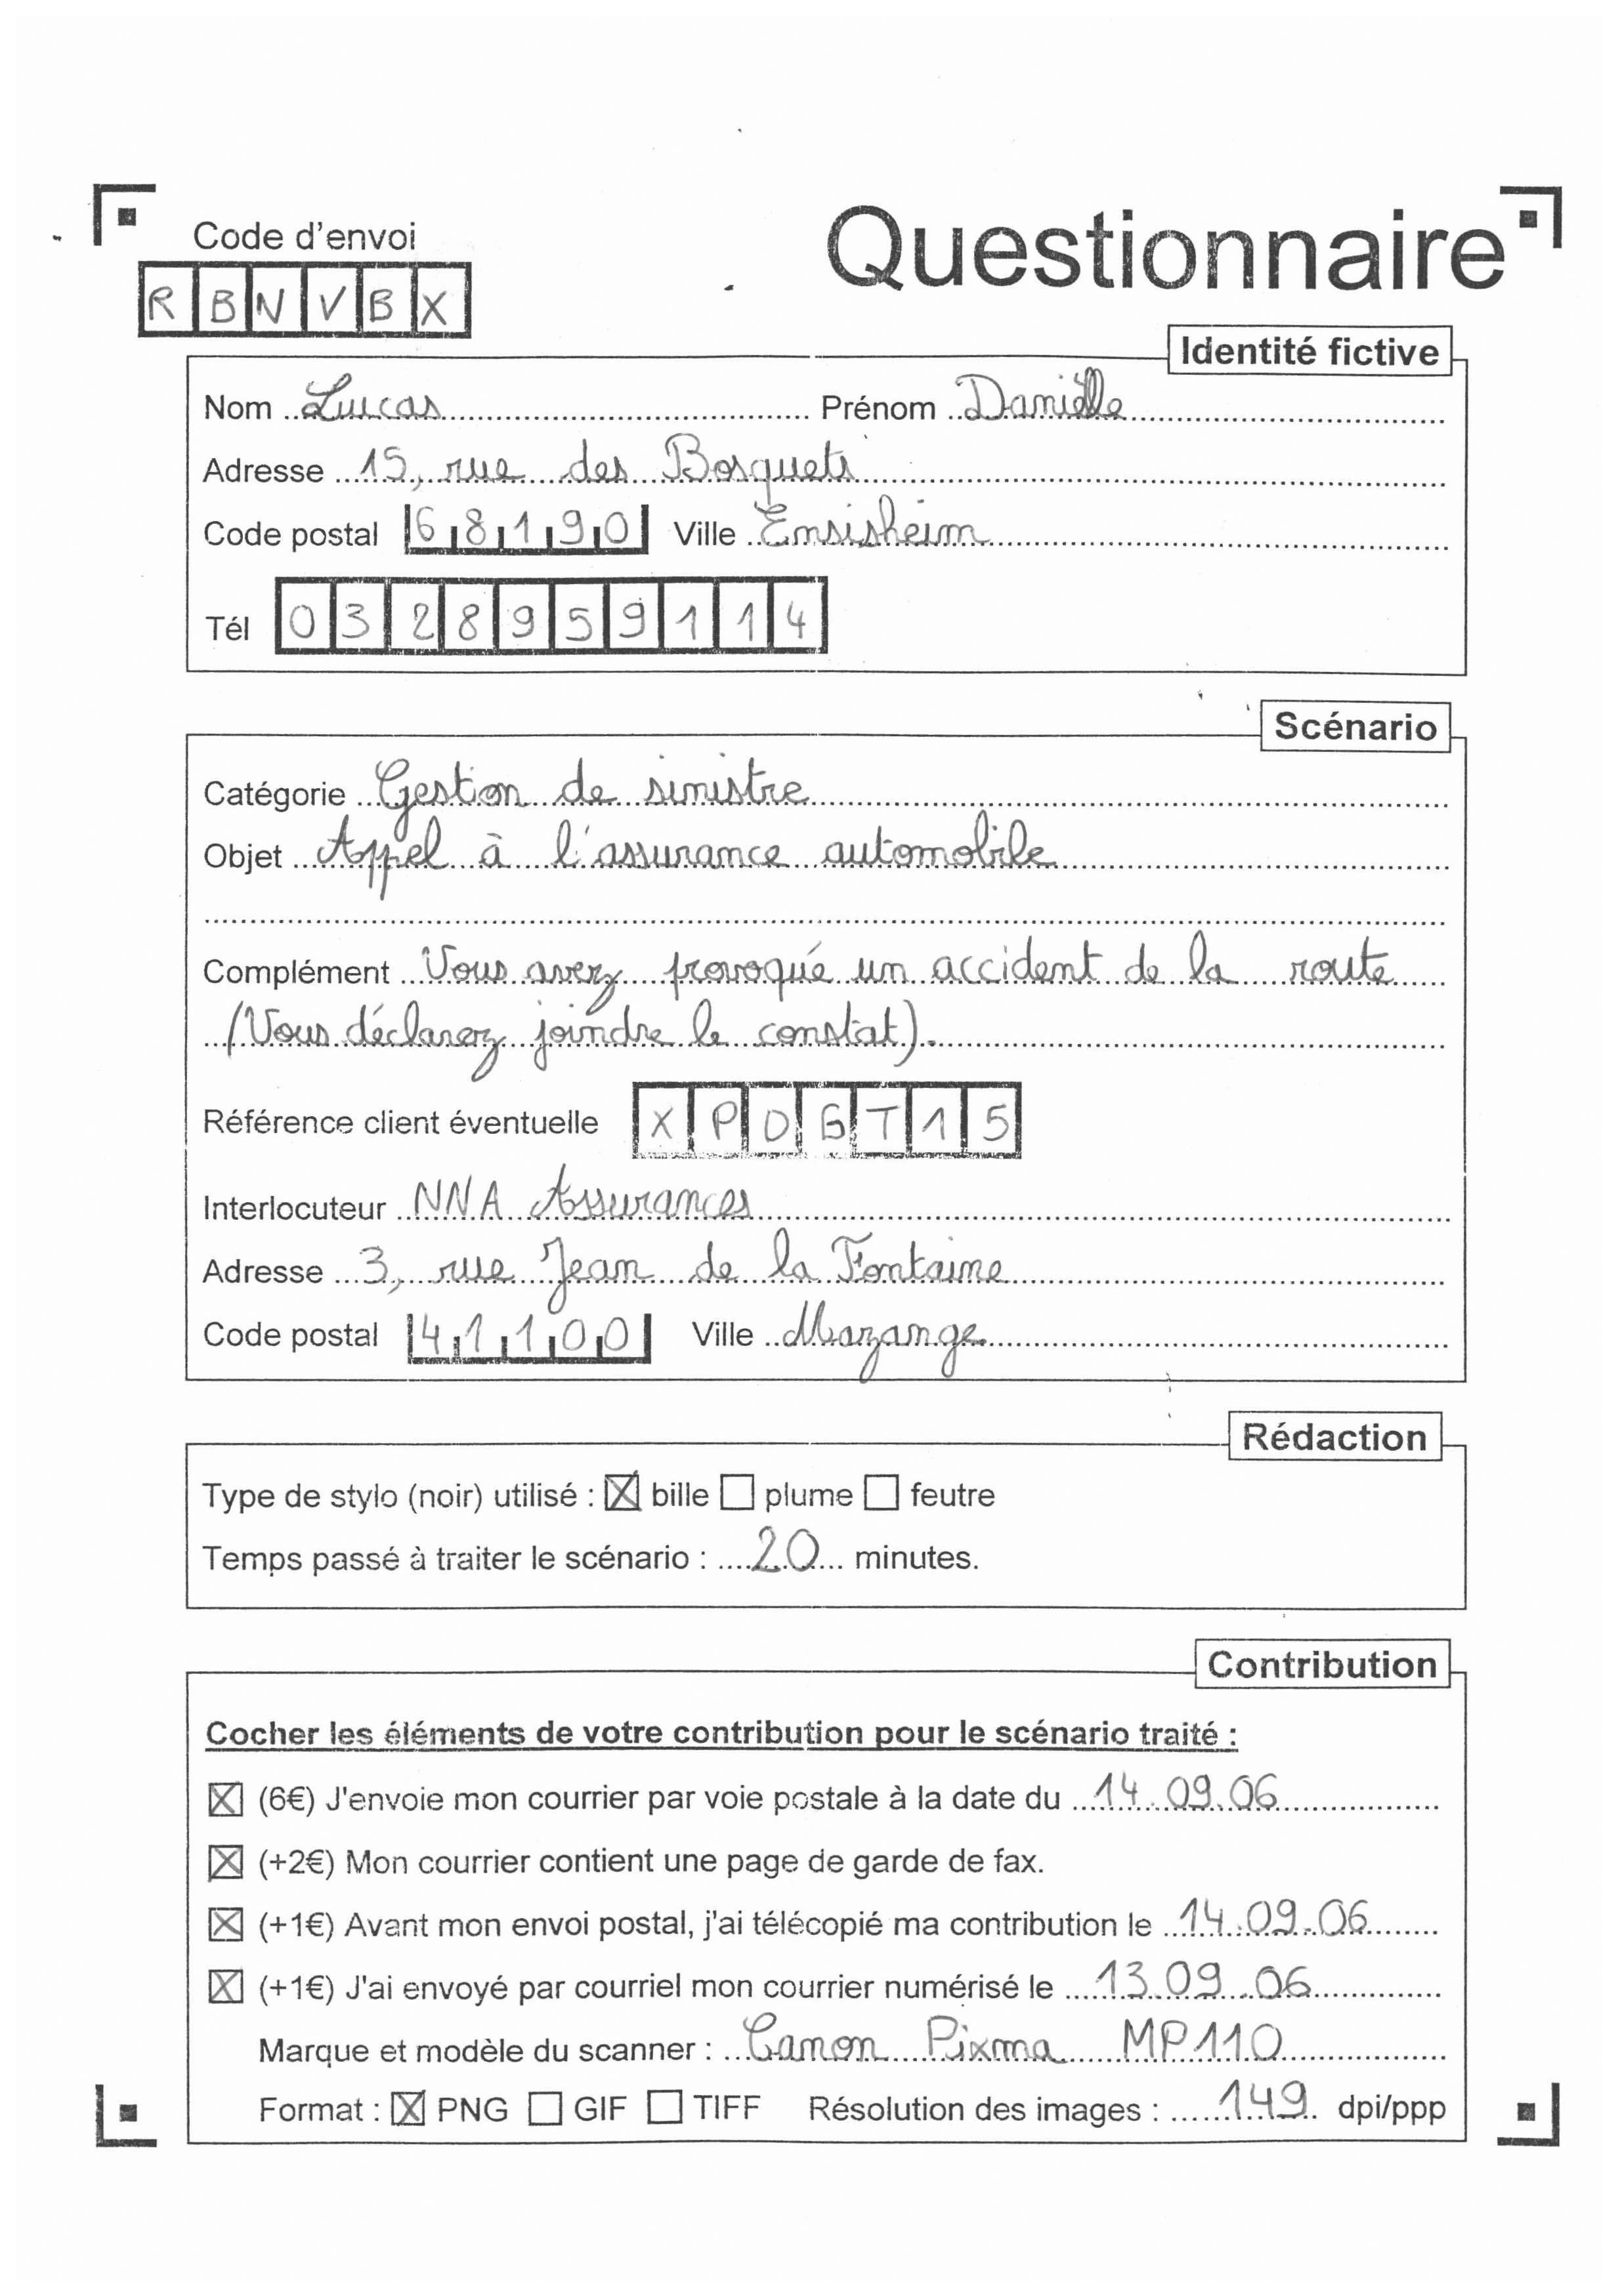 Code d'envoi
Questionnaire
R B N V B X
Identité fictive
Nom Lucas Prénom Danielle
Adresse 15, rue des Bosquets
Code postal 68190 Ville Ensisheim
Tél 0328959114
Scénario
Catégorie Gestion de sinistre
Objet Appel à l'assurance automobile
Complément Vous avez provoqué un accident de la route
(Vous déclarez joindre le constat).
Référence client éventuelle X P D G T 1 5
Interlocuteur NNA Assurances
Adresse 3, rue Jean de la Fontaine
Code postal 41100 Ville Mazange
Rédaction
Type de stylo (noir) utilisé : ☒ bille ☐ plume ☐ feutre
Temps passé à traiter le scénario : 20 minutes.
Contribution
Cocher les éléments de votre contribution pour le scénario traité :
☒ (6€) J'envoie mon courrier par voie postale à la date du 14.09.06
☒ (+2€) Mon courrier contient une page de garde de fax.
☒ (+1€) Avant mon envoi postal, j'ai télécopié ma contribution le 14.09.06
☒ (+1€) J'ai envoyé par courriel mon courrier numérisé le 13.09.06
Marque et modèle du scanner : Canon Pixma MP110
Format : ☒ PNG ☐ GIF ☐ TIFF Résolution des images : 149 dpi/ppp